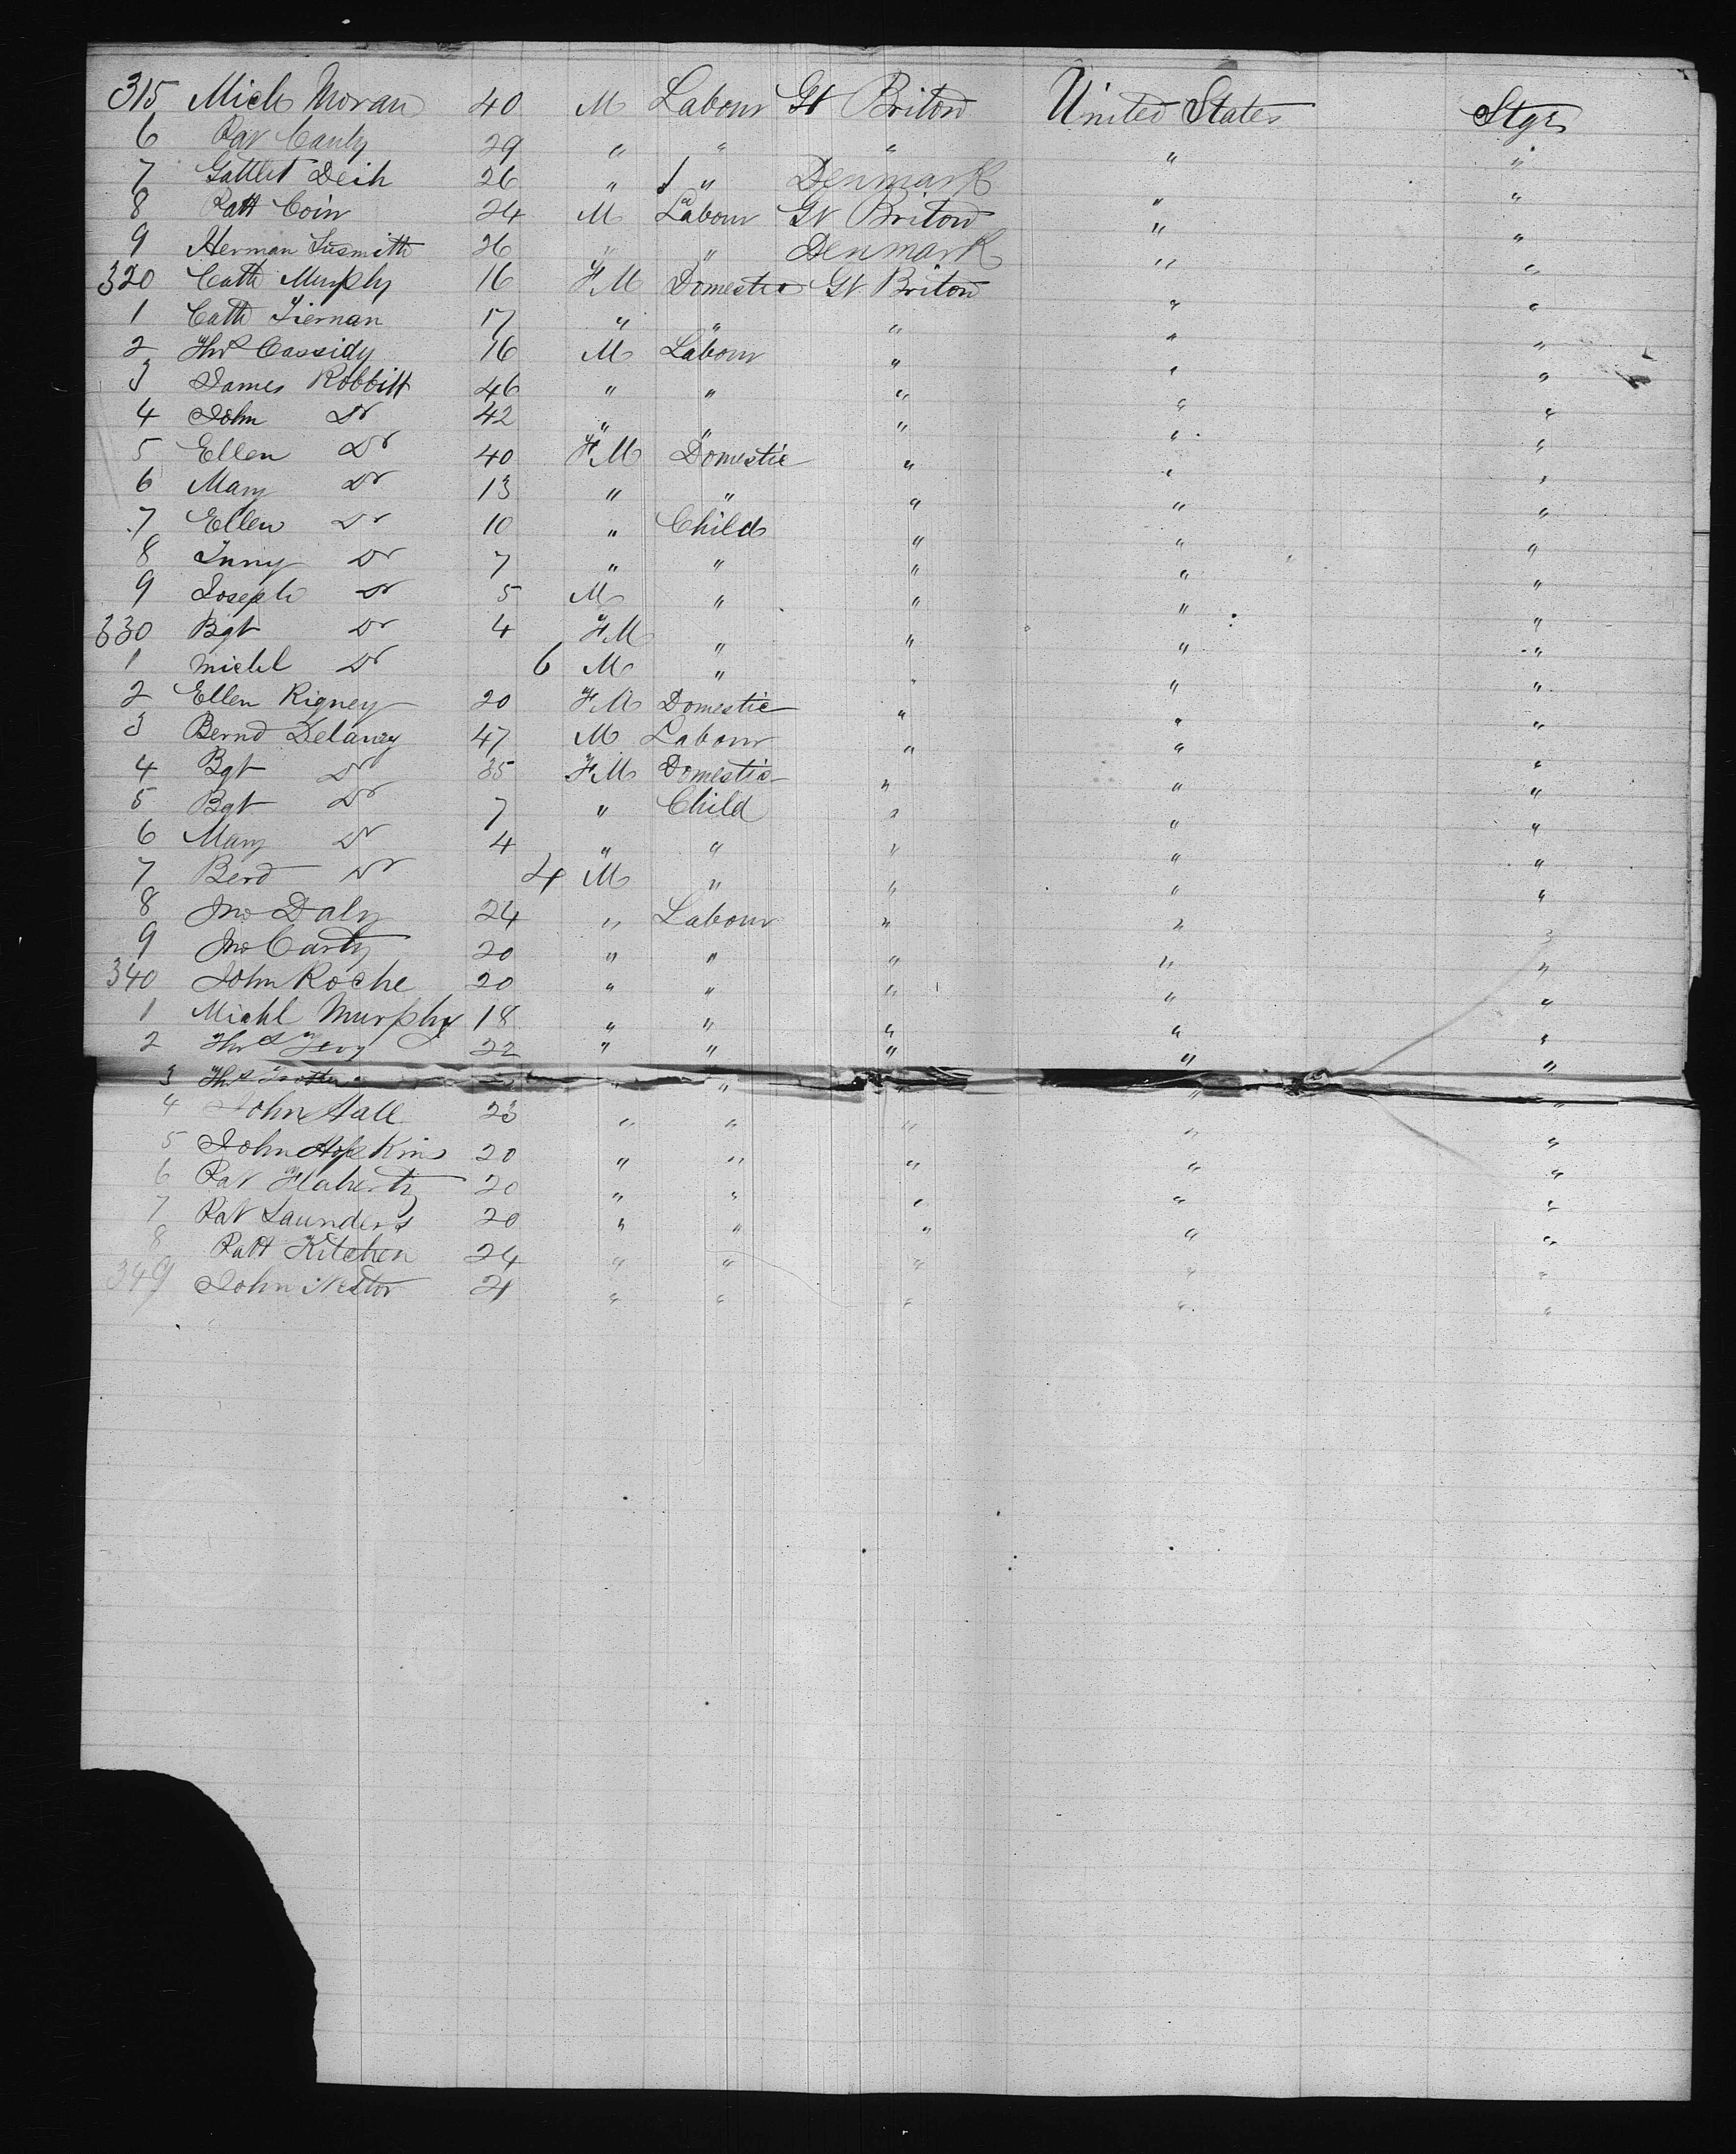 315 Mich Moran 40 M Labour Gt Briton United States Stge
6 Pat Canly 29 " " " " "
7 Gottlet Deih 26 " " Denmark " "
8 Patt Coin 24 M Labour Gt Briton " "
9 Herman Susmith 26 " " Denmark " "
320 Cath Murphy 16 FM Domestic Gt Briton " "
1 Cath Tiernan 17 " " " " "
2 Thos Cassidy 16 M Labour " " "
3 James Robbitt 46 " " " " "
4 John Do 42 " " " " "
5 Ellen Do 40 FM Domestic " " "
6 Mary Do 13 " " " " "
7 Ellen Do 10 " Child " " "
8 Inny Do 7 " " " " "
9 Joseph Do 5 M " " " "
330 Bgt Do 4 FM " " " "
1 Michl Do 6 M " " " "
2 Ellen Rigney 20 FM Domestic " " "
3 Bernd Delaney 47 M Labour " " "
4 Bgt Do 35 FM Domestic " " "
5 Bgt Do 7 " Child " " "
6 Mary Do 4 " " " " "
7 Berd Do 4 M " " " "
8 Jno Daly 24 " Labour " " "
9 Jno Carty 20 " " " " "
340 John Roche 20 " " " " "
1 Michl Murphy 18 " " " " "
2 Thos 22 " " " " "
3 Thos " " " " "
4 John Hall 23 " " " " "
5 John Hopkins 20 " " " " "
6 Pat Flaherty 20 " " " " "
7 Pat Saunders 20 " " " " "
8 Patt Kitchen 24 " " " " "
349 John Nestor 21 " " " " "